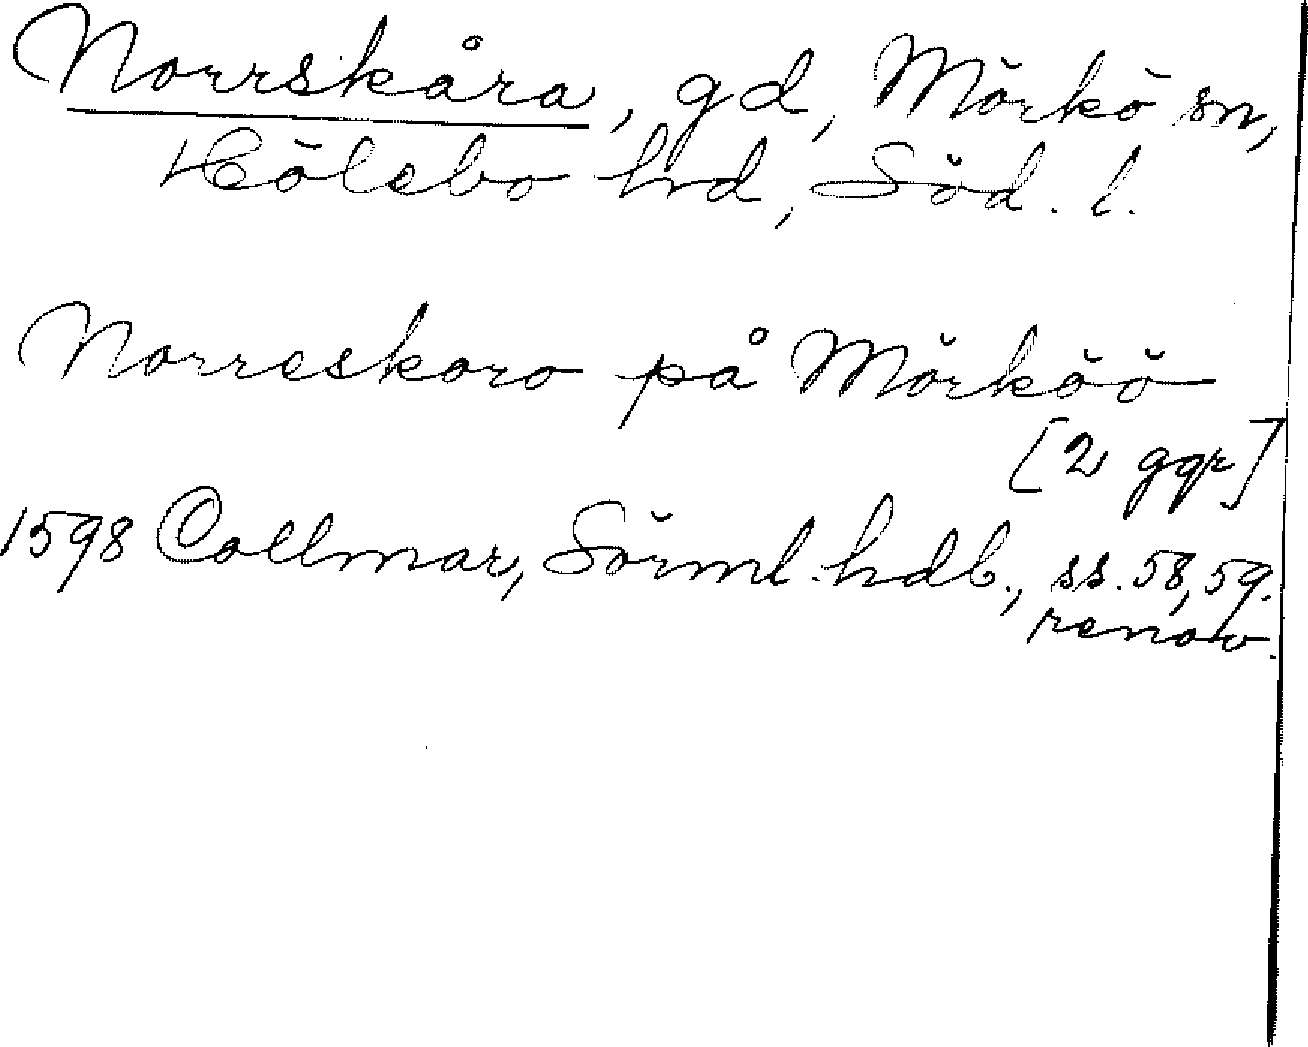 Norrskåra, gd, Mörkö sn,
Hölebo hrd, Söd. l.
Norreskoro på Mörköö
[2 ggr]
1598 Collmar, Sörml. hdl., ss. 58, 59.
renov.